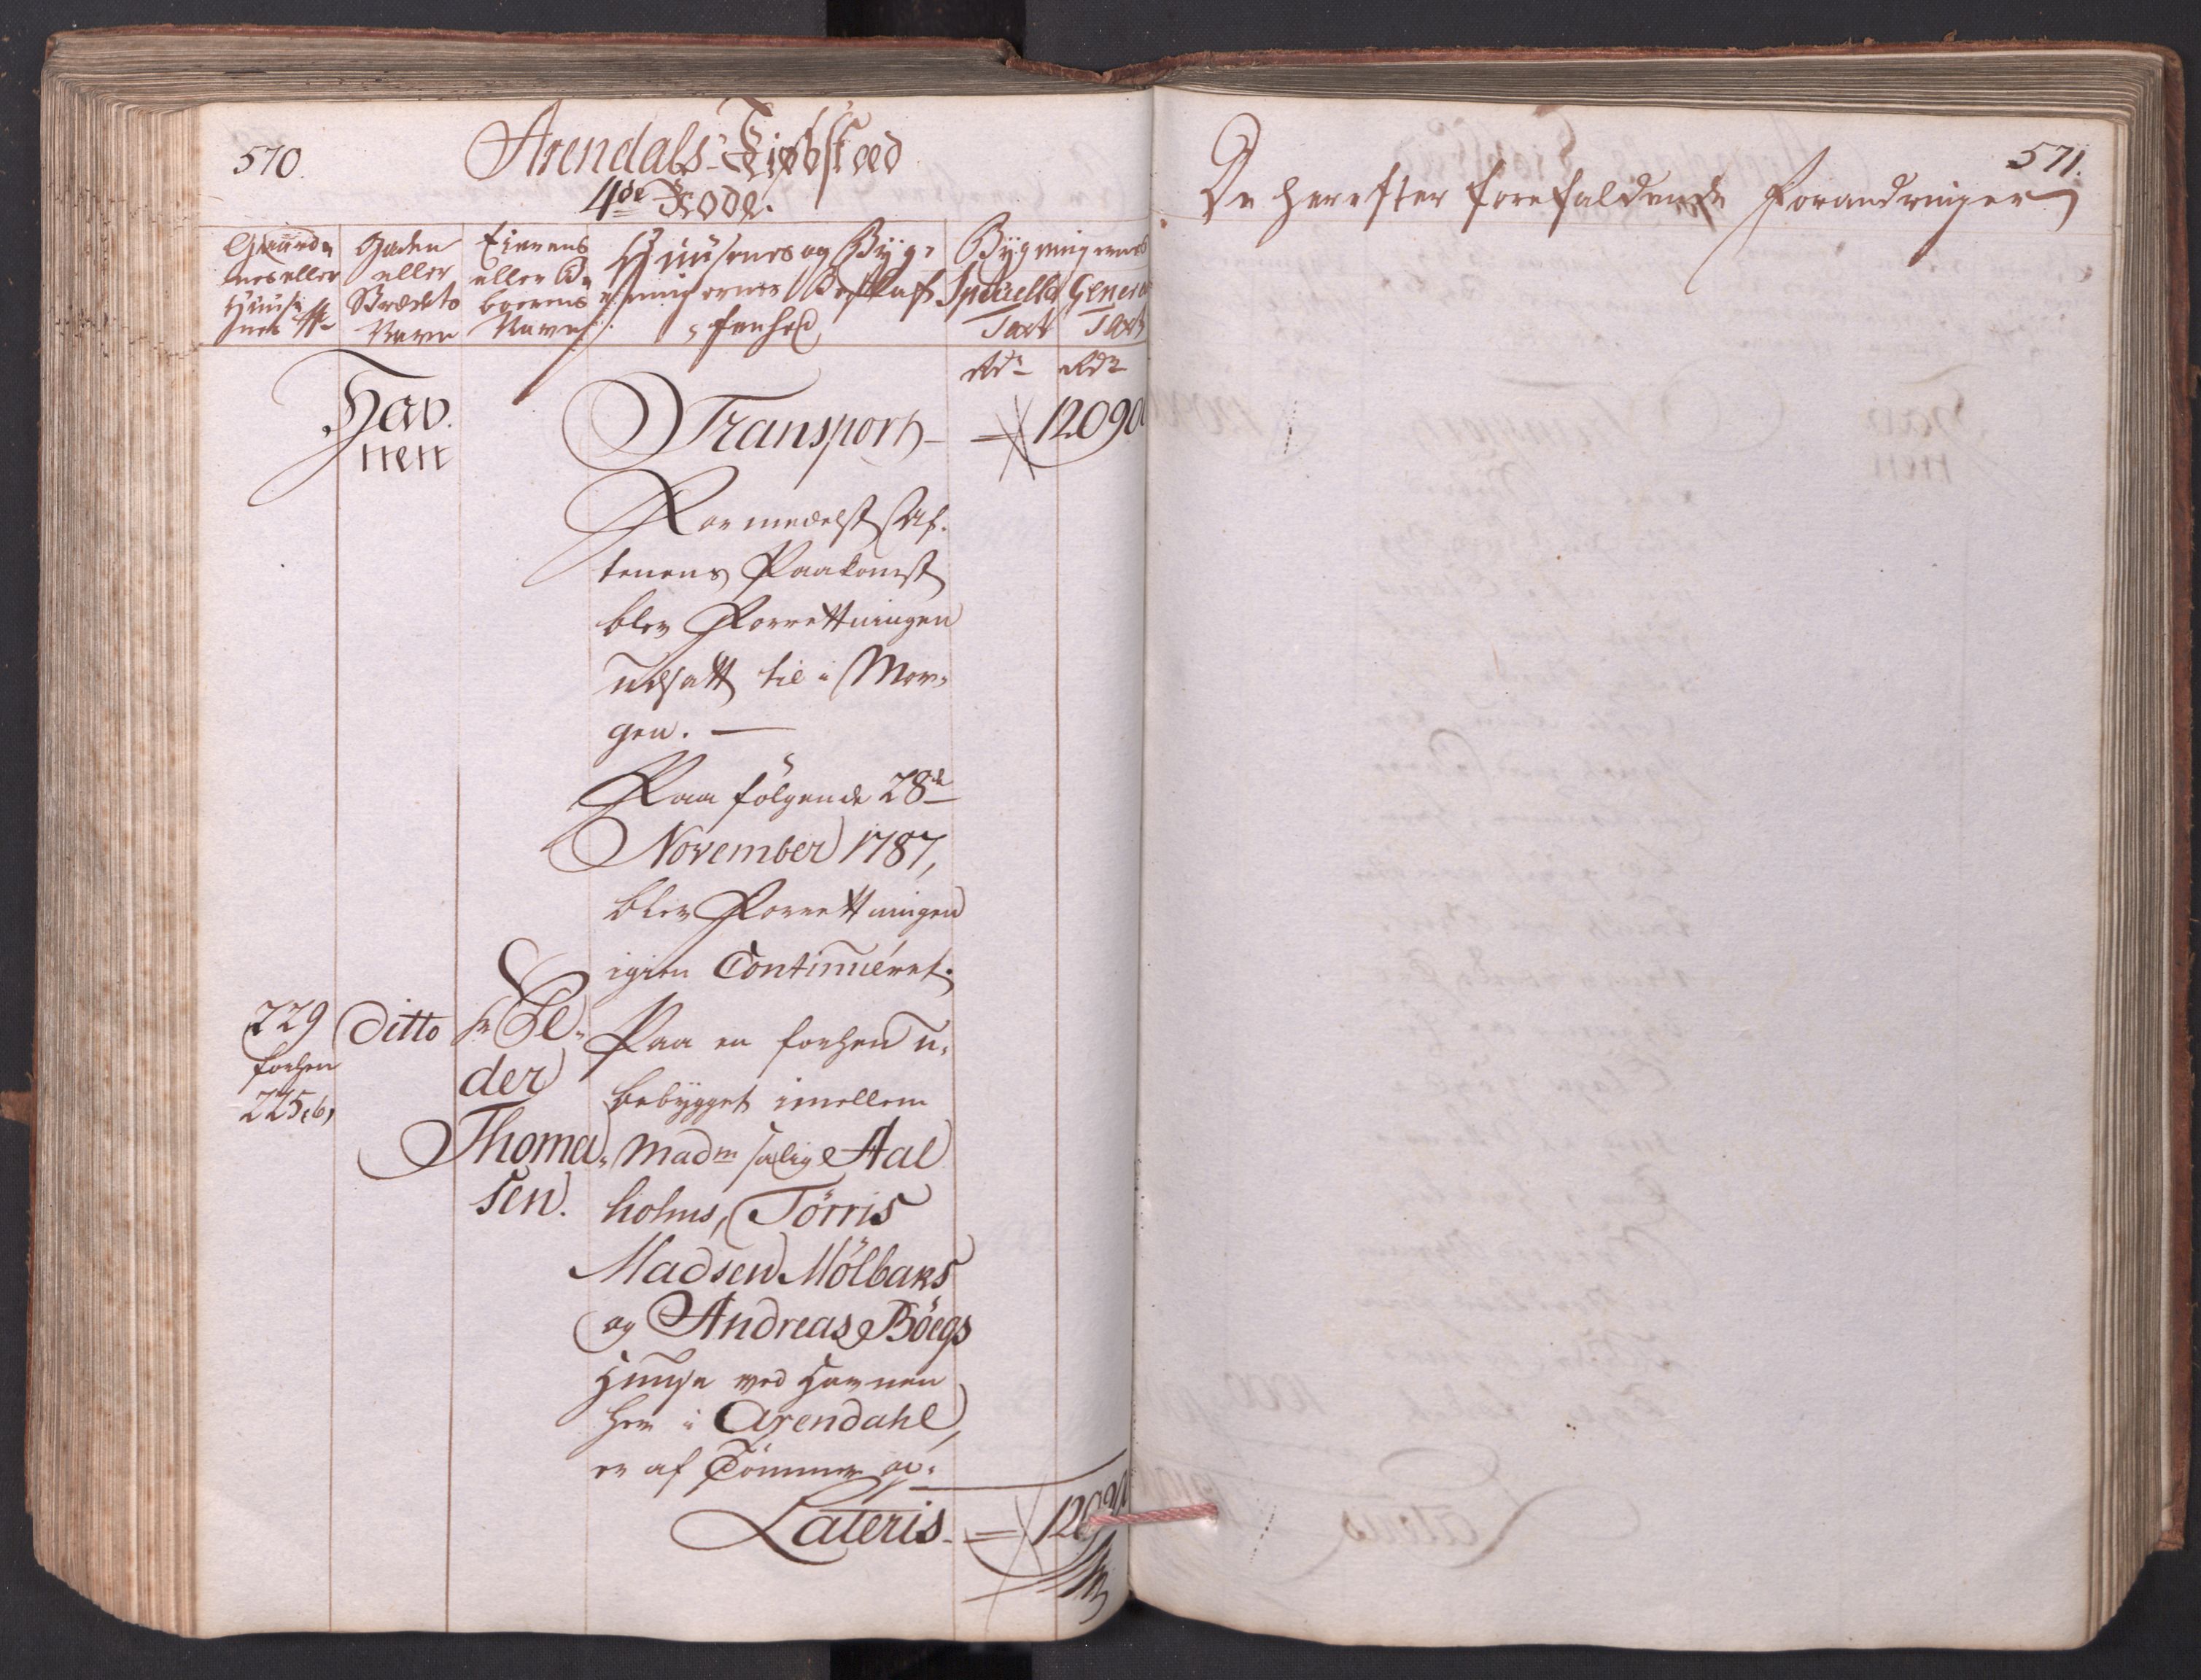 570.
Arendals Kiøbstæd
4de Rode.
Grund
nes eller
Huuse
nes No
Gaden
eller
Strædets
Navn
Eierens
eller Be
boerens
Navn
Huusenes og Byg-
ningernes Beskaf-
fenhed
Bygningernes
Specielle
Taxt
General
Taxt
Rdr
Rdr
Hav.
nen
Transport
12090
Formedelst Af-
tenens Paakomst
blev Forrettningen
udsatt til i Mor-
gen. —
Paa følgende 28de
November 1787,
blev Forrettningen
igien Continuéret.
229
forhen
225,b,
Ditto
Hr Pe-
der
Thoma-
sen.
Paa en forhen u-
bebygget imellem
Madm salig Aal
holms, Törris
Madsen Mölbaks
og Andreas Böegs
Huuse ved Havnen
her i Arendahl,
er af Tömmer op-
Lateris
1209
571.
De herefter forefaldende Forandringer